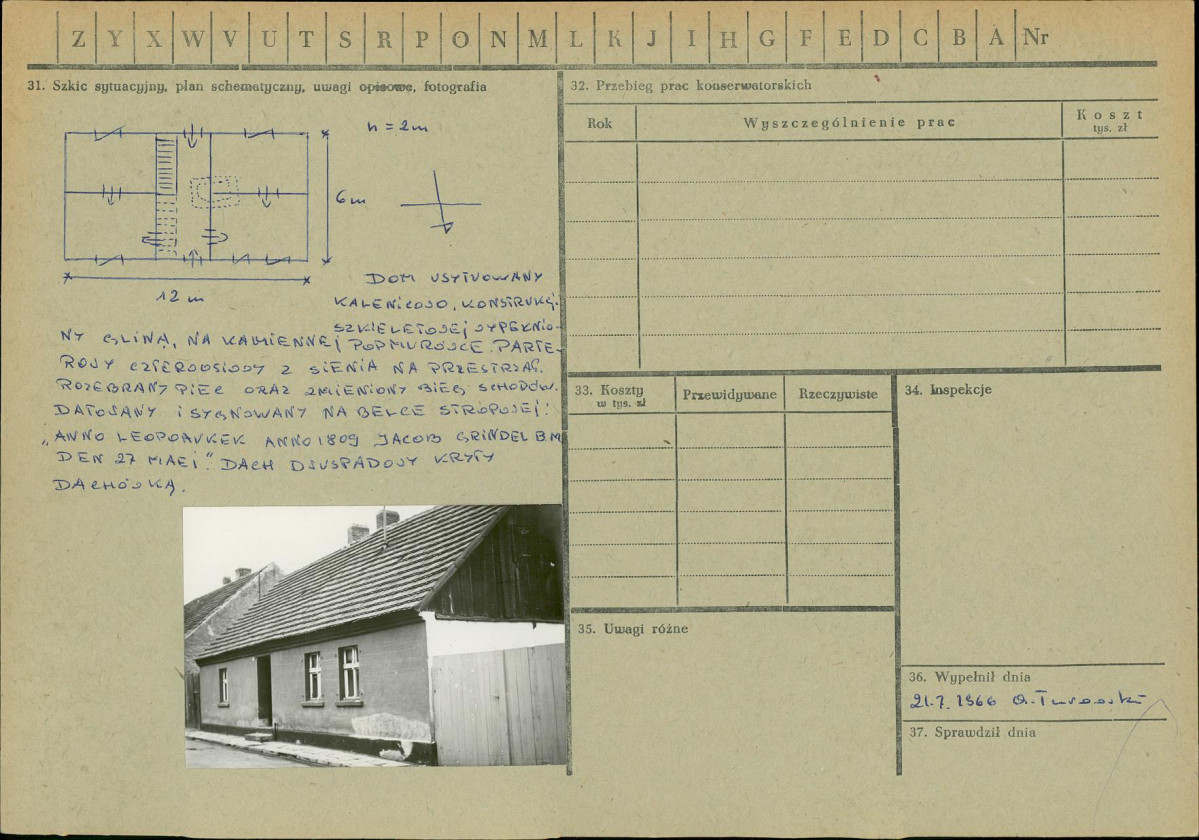 Z Y X W V U T S R P O N M L K J I H G F E D C B A Nr
31. Szkic sytuacyjny, plan schematyczny, uwagi opisowe, fotografia
h = 2m
6m
12 m
DOM USYTUOWANY
KALENICOWO, KONSTRUKCJI
SZKIELETOWEJ WYPEŁNIO-
NY GLINĄ, NA KAMIENNEJ PODMURÓWCE. PARTE-
ROWY CZTEROOSIOWY Z SIENIĄ NA PRZESTRZAŁ.
ROZEBRANY PIEC ORAZ ZMIENIONY BIEG SCHODÓW.
DATOWANY I SYGNOWANY NA BELCE STROPOWEJ:
„ANNO ANNO 1809 JACOB GRINDEL B.M
DEN 27 MAEI". DACH DWUSPADOWY KRYTY
DACHÓWKĄ.
32. Przebieg prac konserwatorskich
Rok Wyszczególnienie prac Koszt
tys. zł
33. Koszty
w tys. zł
Przewidywane Rzeczywiste
34. Inspekcje
35. Uwagi różne
36. Wypełnił dnia
21.7.1966
37. Sprawdził dnia